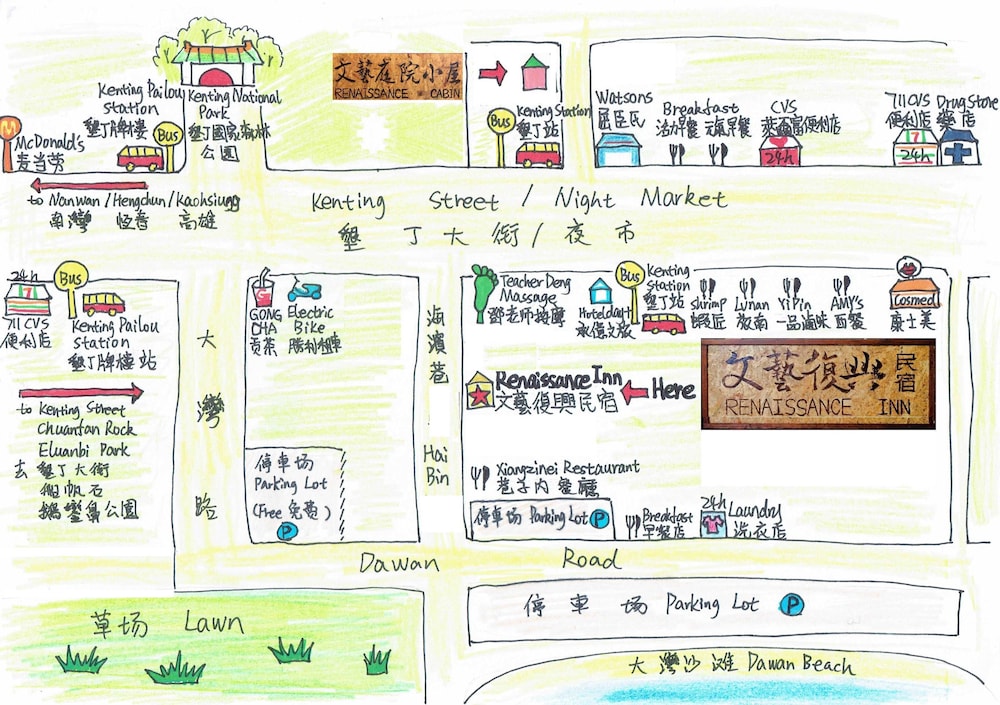 Kenting Pailou
station
墾丁牌樓
Bus
Kenting National
Park
墾丁國家森林
公園
M
McDonald's
麦当劳
to Nanwan/Hengchun/Kaohsiung
南灣 恆春 高雄
文藝庭院小屋
RENAISSANCE CABIN
Bus
Kenting Station
墾丁站
Watsons
屈臣氏
Breakfast
活力早餐 元氣早餐
CVS
萊爾富便利店
24h
711 CVS
便利店
7
24h
Drug Store
藥店
Kenting Street / Night Market
墾丁大街/夜市
24h
7
711 CVS
便利店
Bus
Kenting Pailou
Station
墾丁牌樓站
to Kenting Street
Chuanfan Rock
Eluanbi Park
去 墾丁大街
船帆石
鵝鑾鼻公園
大灣路
GONG
CHA
贡茶
Electric
Bike
勝利租車
停車场
Parking Lot
(Free 免費)
P
海濱巷
Hai
Bin
Teacher Deng
Massage
鄧老師按摩
Hotelday+
承億文旅
Bus
Kenting
Station
墾丁站
shrimp
蝦匠
Lunan
YiPin
一品滷味
AMY's
西餐
Cosmed
康士美
Renaissance Inn
文藝復興民宿
Here
文藝復興民宿
RENAISSANCE INN
Xiangzinei Restaurant
巷子内餐廳
停車场 Parking Lot P
Breakfast
早餐店
24h
Laundry
洗衣店
Dawan Road
草场 Lawn
停車场 Parking Lot P
大灣沙滩 Dawan Beach